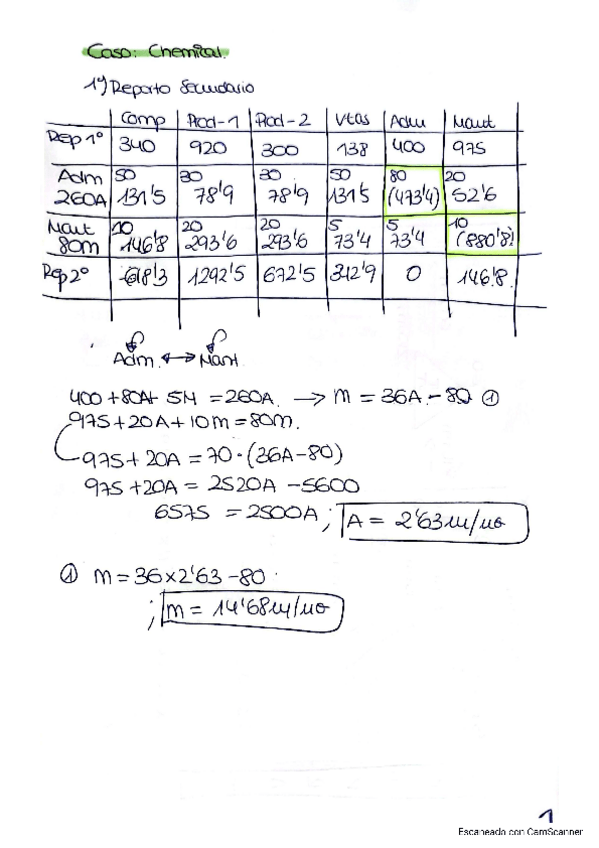 Caso: Chemical.
1º) Reparto Secundario
Comp Prod-1 Prod-2 Vtas Adm Mant
Rep 1º 340 920 300 138 400 975
Adm 50 30 30 50 80 20
260A 131'5 78'9 78'9 131'5 (473'4) 52'6
Mant 10 20 20 5 5 10
80m 146'8 293'6 293'6 73'4 73'4 (880'8)
Rep 2º 618'3 1292'5 672'5 342'9 0 146'8.
Adm. ↔ Mant.
400 + 80A + 5M = 260A. → m = 36A - 80 ①
975 + 20A + 10m = 80m.
975 + 20A = 70·(36A-80)
975 + 20A = 2520A - 5600
6575 = 2500A ; A = 2'63 m/mo
① m = 36×2'63 - 80
; m = 14'68 m/mo
1
Escaneado con CamScanner